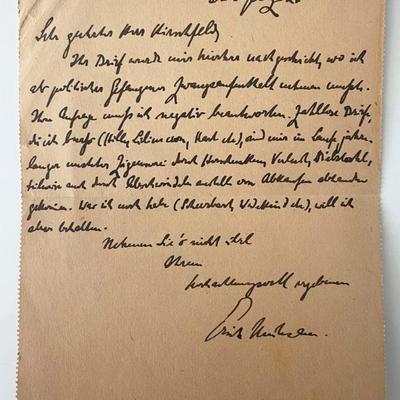 Sehr geehrter Herr Hirschfeld,
Ihr Brief wurde mir hierher nachgeschickt, wo ich
als politischer Gefangener Zwangsaufenthalt nehmen musste.
Ihre Anfrage muss ich negativ beantworten. Zahllose Briefe,
die ich besass (Hille, Liliencron, Hart etc), sind mir im Laufe jahre-
langer unsteter Zigeunerei durch Verlust, Diebstahl,
teilweise auch durch
gekommen. Was ich noch habe (Scheerbart, Wedekind etc), will ich
aber behalten.
Nehmen Sie's nicht übel
Ihrem
hochachtungsvoll ergebenen
Erich Mühsam.